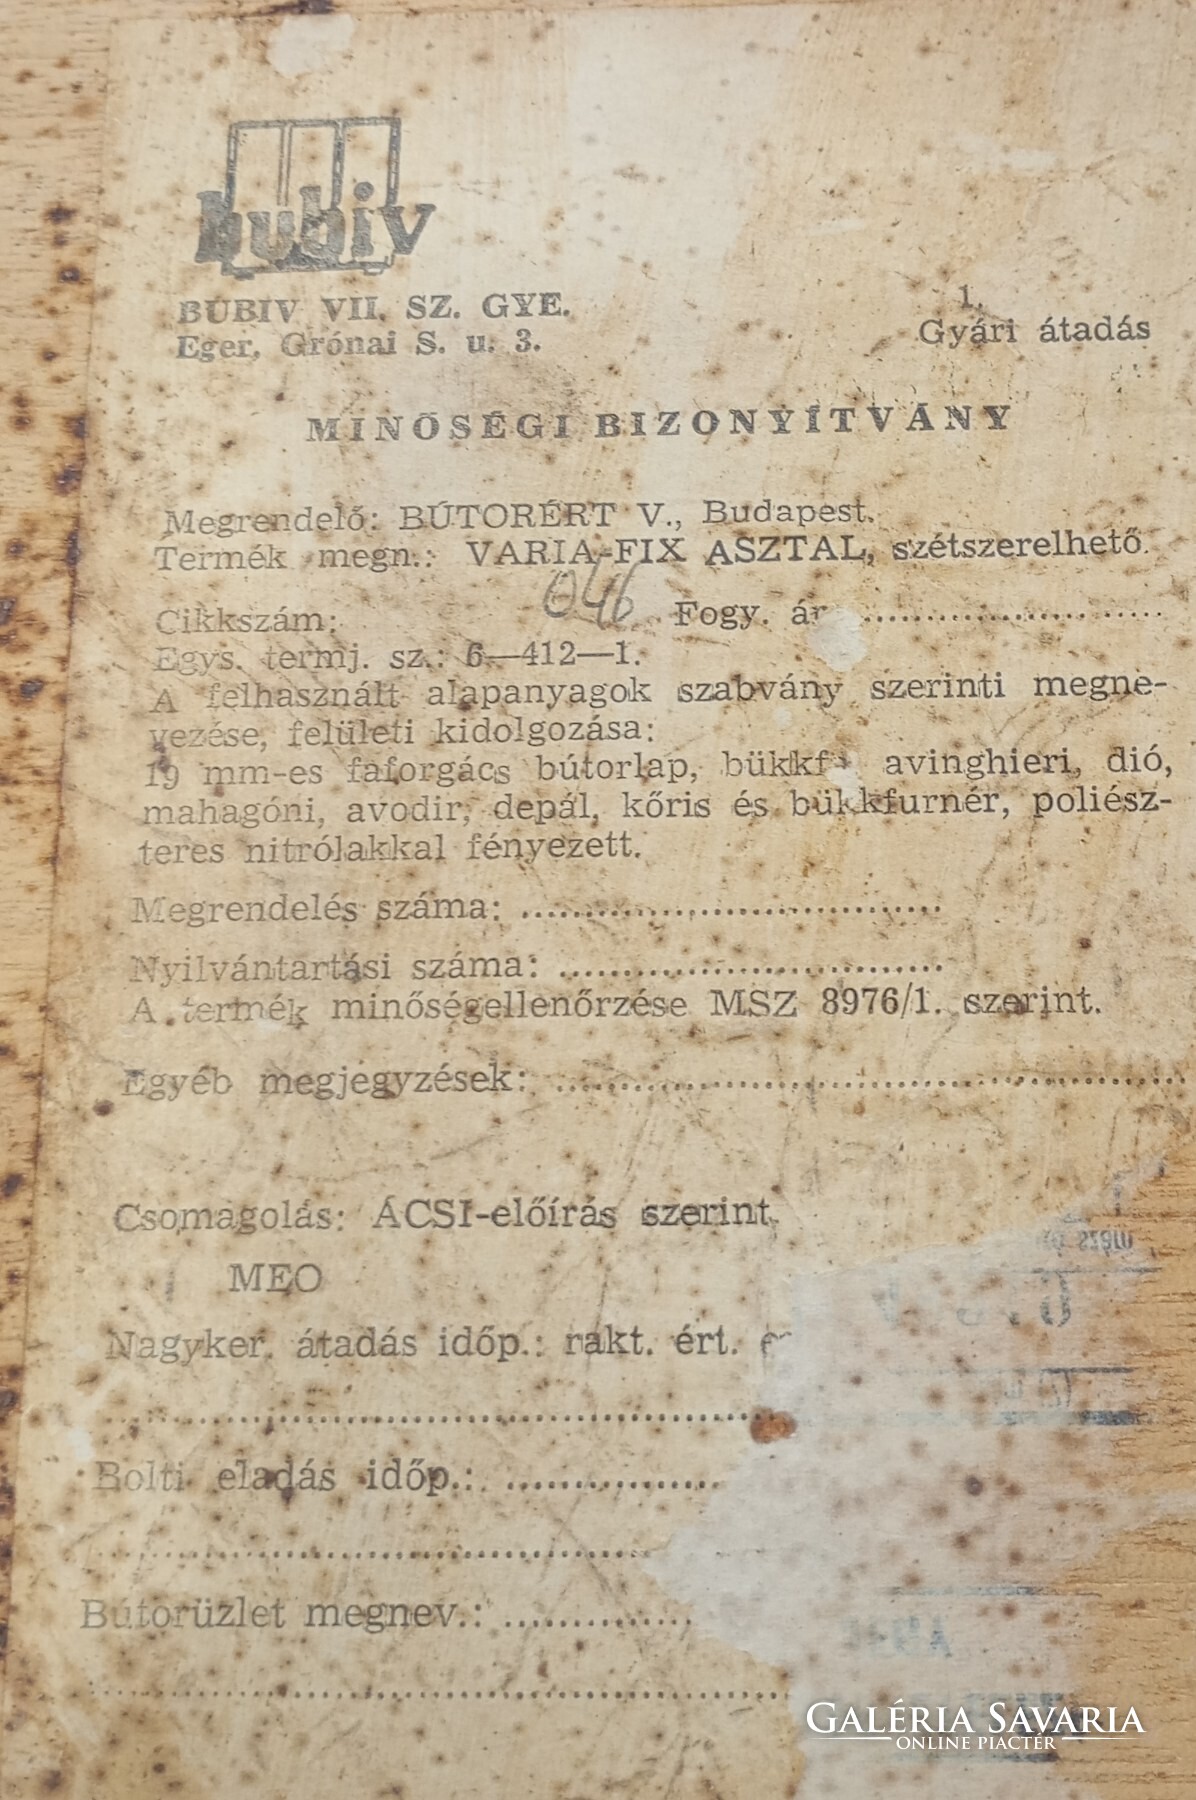 bubiv
BUBIV VII. SZ. GYE.
Eger, Grónai S. u. 3.
1.
Gyári átadás
MINŐSÉGI BIZONYÍTVÁNY
Megrendelő: BÚTORÉRT V., Budapest.
Termék megn.: VARIA-FIX ASZTAL, szétszerelhető.
Cikkszám: 046 Fogy. ár ....................
Egys. termj. sz.: 6—412—1.
A felhasznált alapanyagok szabvány szerinti megne-
vezése, felületi kidolgozása:
19 mm-es faforgács bútorlap, bükkf avinghieri, dió,
mahagóni, avodir, depál, kőris és bükkfurnér, poliész-
teres nitrólakkal fényezett.
Megrendelés száma: ..............................
Nyilvántartási száma: ..............................
A termék minőségellenőrzése MSZ 8976/1. szerint.
Egyéb megjegyzések: ..............................
Csomagolás: ÁCSI-előírás szerint.
MEO
Nagyker. átadás időp.: rakt. ért.
..............................
Bolti eladás időp.: ..............................
..............................
Bútorüzlet megnev.: ..............................
..............................
szám
GALÉRIA SAVARIA
ONLINE PIACTÉR